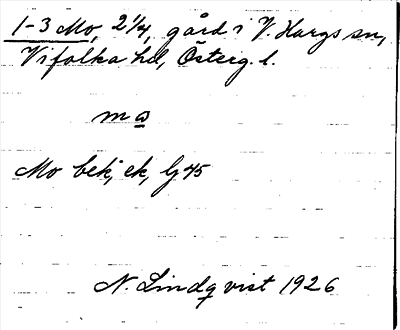 1-3 Mo, 2¼, gård i V. Hargs sn,
Vifolka hd, Österg. l.
m a
Mo bek, ek, Lj 45
N. Lindqvist 1926